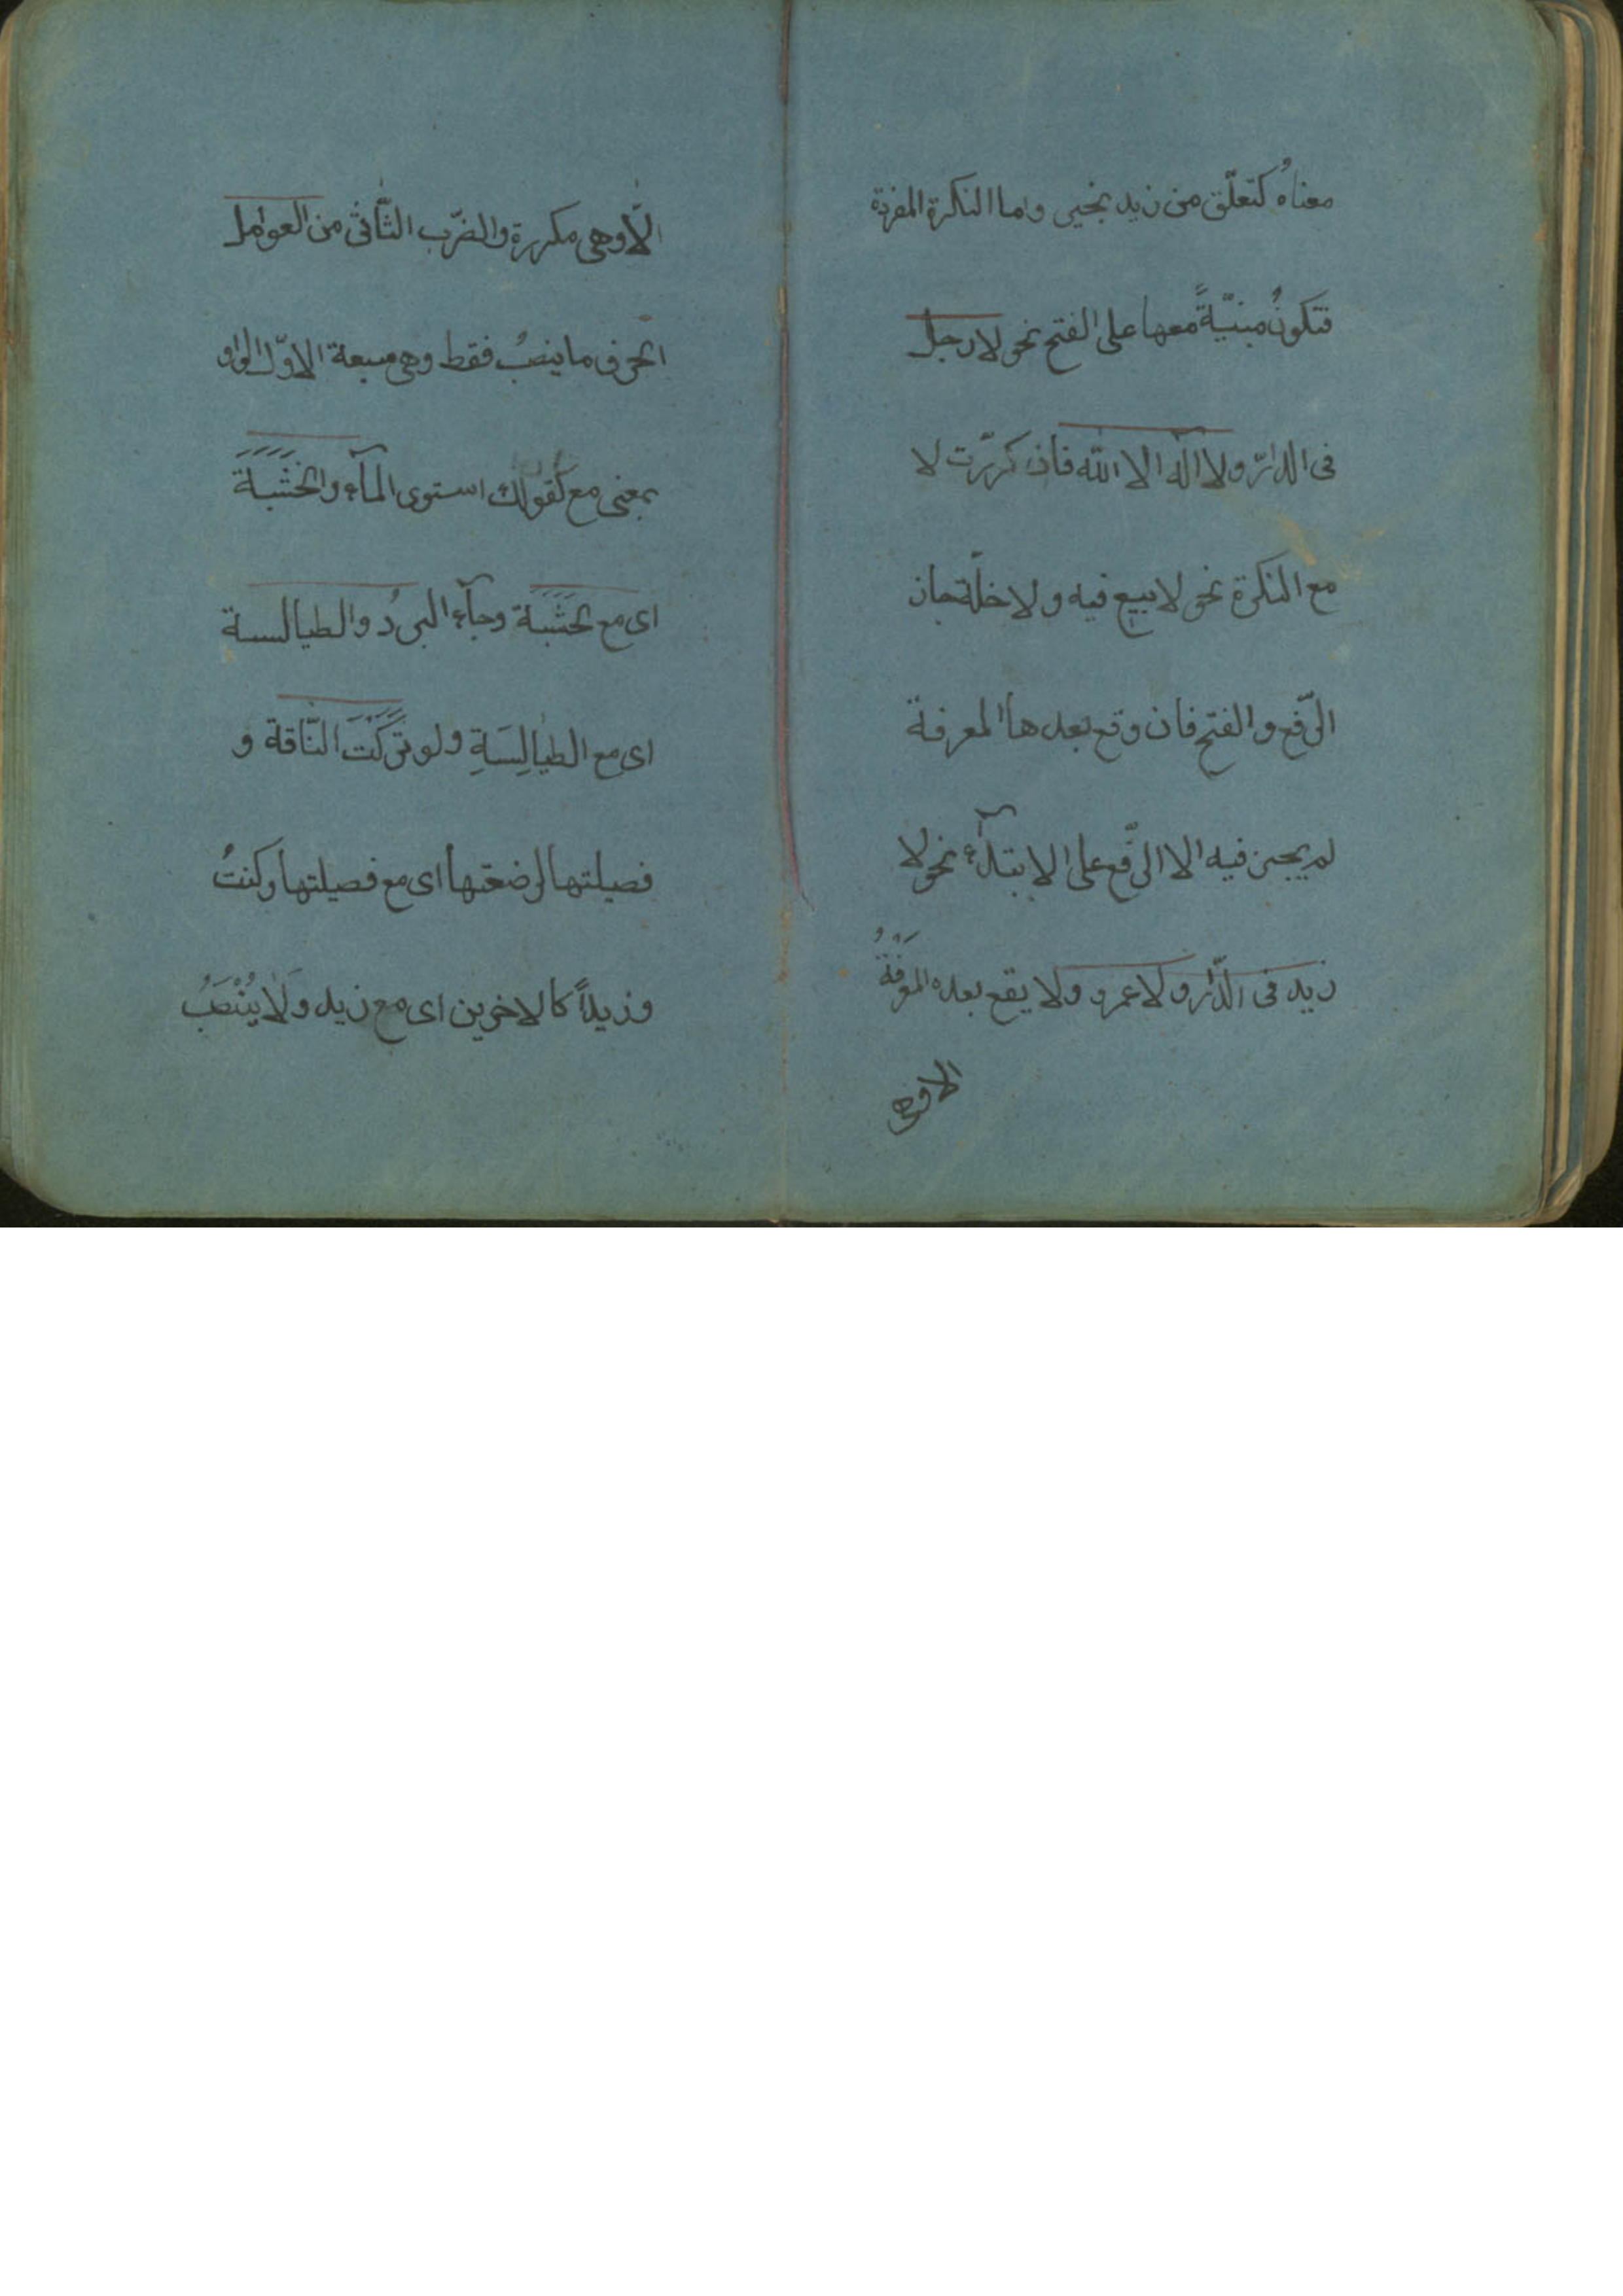 معناهُ كتعلّق من زيد بخير واما النكرة المفردة
فتكونُ مبنيّةً معها على الفتح نحو لا رجل
فى الدار ولا اله الا الله فان كررّت لا
مع النكرة نحو لا بيع فيه ولا خلّة جاز
الرّفع والفتح فان وقع بعدها المعرفة
لم يجز فيه الا الرّفع على الابتدآء نحو لا
زيد فى الدّار ولا عمرو ولا يقع بعده المعرفةُ
الا وهى
الّا وهى مكررة والضّرب الثّانى من العوامل
الحرف ما ينصبُ فقط وهى سبعة الاوّل الواو
بمعنى مع كقولك استوى المآء والخَشَبَةَ
اى مع خَشَبَة وجآء البردُ والطيالسة
اى مع الطيالِسَةِ ولو تَرَكْتَ النّاقة و
فصيلتها لرضعتها اى مع فصيلتها وكنتُ
وزيداً كالاخرين اى مع زيد وَلَا يُنْصَبُ